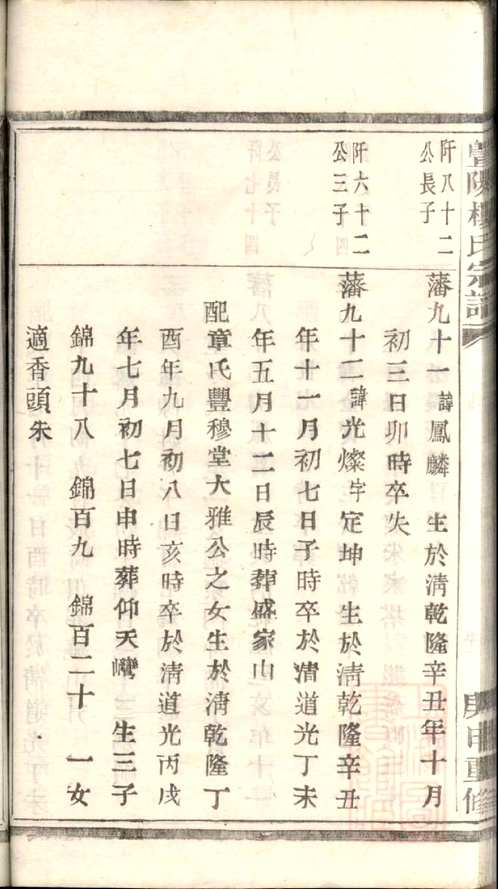 暨陽樓氏宗譜
庚申重修
阡八十二
公長子
藩九十一諱鳳麟 生於清乾隆辛丑年十月
初三日卯時卒失
阡六十二
公三子
藩九十二諱光燦字定坤 生於清乾隆辛丑
年十一月初七日子時卒於清道光丁未
年五月十二日辰時葬盛家山
配章氏豐穆堂大雅公之女生於淸乾隆丁
酉年九月初八日亥時卒於淸道光丙戌
年七月初七日申時葬仰天灣 生三子
錦九十八 錦百九 錦百二十 一女
適香頭朱